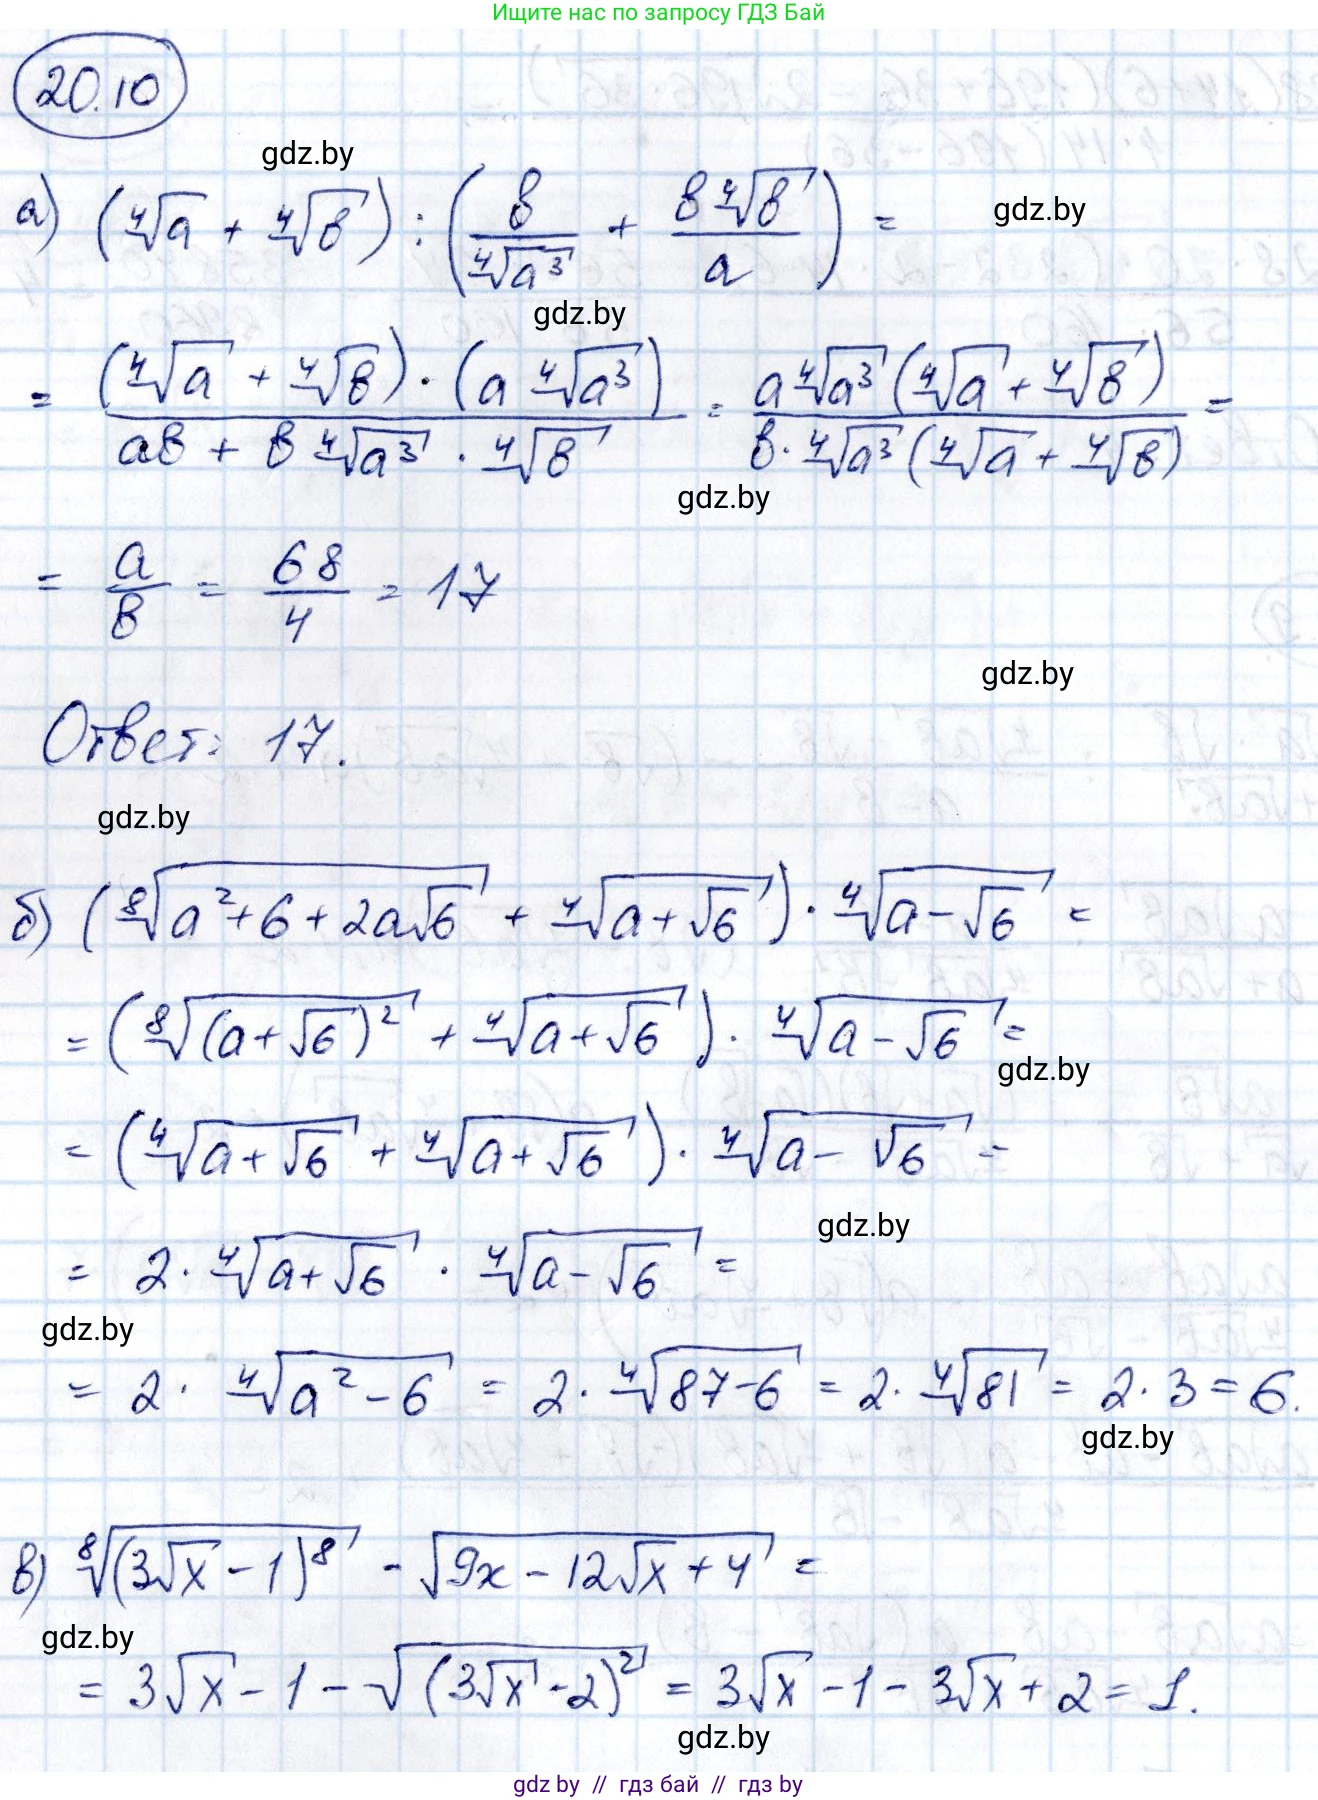 Ищите нас по запросу ГДЗ Бай
20.10
gdz.by
а) (∜a + ∜b) : (b/∜a³ + b∜b/a) =
gdz.by
gdz.by
= (∜a + ∜b) · (a ∜a³) / (ab + b ∜a³ · ∜b) = a∜a³ (∜a + ∜b) / (b · ∜a³ (∜a + ∜b)) =
gdz.by
= a/b = 68/4 = 17
gdz.by
Ответ: 17.
gdz.by
б) (⁸√(a² + 6 + 2a√6) + ∜(a + √6)) · ∜(a - √6) =
= (⁸√((a + √6)²) + ∜(a + √6)) · ∜(a - √6) =
gdz.by
= (∜(a + √6) + ∜(a + √6)) · ∜(a - √6) =
gdz.by
= 2 · ∜(a + √6) · ∜(a - √6) =
gdz.by
= 2 · ∜(a² - 6) = 2 · ∜(87 - 6) = 2 · ∜81 = 2 · 3 = 6.
gdz.by
в) ⁸√((3√x - 1)⁸) - √(9x - 12√x + 4) =
gdz.by
= 3√x - 1 - √((3√x - 2)²) = 3√x - 1 - 3√x + 2 = 1.
gdz.by
gdz by // гдз бай // gdz by